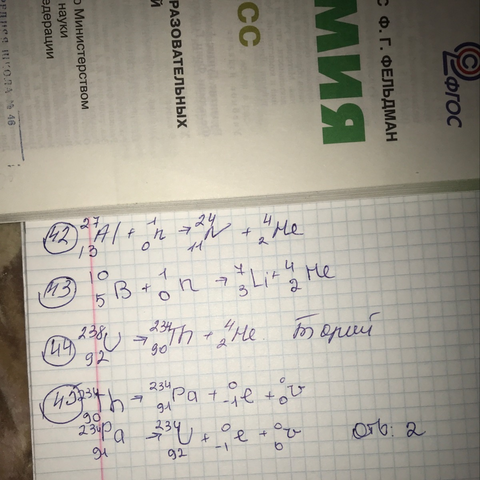 С Ф. Г. ФЕЛЬДМАН
ФГОС
МИЯ
СС
РАЗОВАТЕЛЬНЫХ
о Министерством
науки
едерации
42 ²⁷₁₃Al + ¹₀n → ²⁴₁₁N + ⁴₂He
43 ¹⁰₅B + ¹₀n → ⁷₃Li + ⁴₂He
44 ²³⁸₉₂U → ²³⁴₉₀Th + ⁴₂He Торий
45 ²³⁴₉₀Th → ²³⁴₉₁Pa + ⁰₋₁e + ⁰₀ν
²³⁴₉₁Pa → ²³⁴₉₂U + ⁰₋₁e + ⁰₀ν Отв: 2